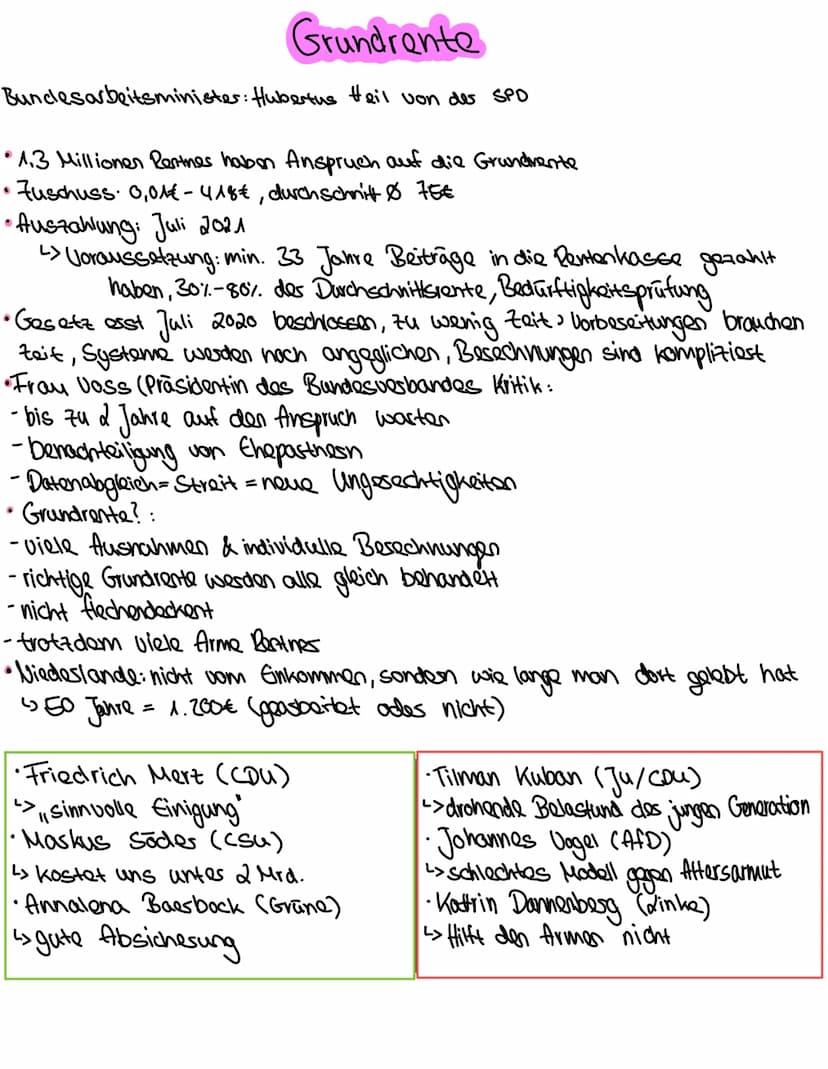 Grundrente
Bundesarbeitsminister: Hubertus Heil von der SPD
• 1,3 Millionen Rentner haben Anspruch auf die Grundrente
• Zuschuss: 0,01€ - 418€, durchschnitt Ø 75€
• Auszahlung: Juli 2021
↳ Voraussetzung: min. 33 Jahre Beiträge in die Rentenkasse gezahlt
haben, 30%-80% der Durchschnittsrente, Bedürftigkeitsprüfung
• Gesetz erst Juli 2020 beschlossen, zu wenig Zeit, Vorbereitungen brauchen
Zeit, Systeme werden noch angeglichen, Berechnungen sind kompliziert
• Frau Voss (Präsidentin des Bundesverbandes Kritik:
- bis zu 2 Jahre auf den Anspruch warten
- benachteiligung von Ehepartnern
- Datenabgleich = Streit = neue Ungerechtigkeiten
• Grundrente? :
- viele Ausnahmen & individuelle Berechnungen
- richtige Grundrente werden alle gleich behandelt
- nicht flechendeckent
- trotzdem viele Arme Rentner
• Niederlande: nicht vom Einkommen, sondern wie lange man dort gelebt hat
↳ 50 Jahre = 1.200€ (gearbeitet oder nicht)
· Friedrich Merz (CDU)
↳ „sinnvolle Einigung"
· Markus Söder (CSU)
↳ kostet uns unter 2 Mrd.
· Annalena Baerbock (Grüne)
↳ gute Absicherung
· Tilman Kuban (JU/CDU)
↳ drohende Belastund der jungen Generation
· Johannes Vogel (AfD)
↳ schlechtes Modell gegen Altersarmut
· Katrin Dannenberg (Linke)
↳ Hilft den Armen nicht